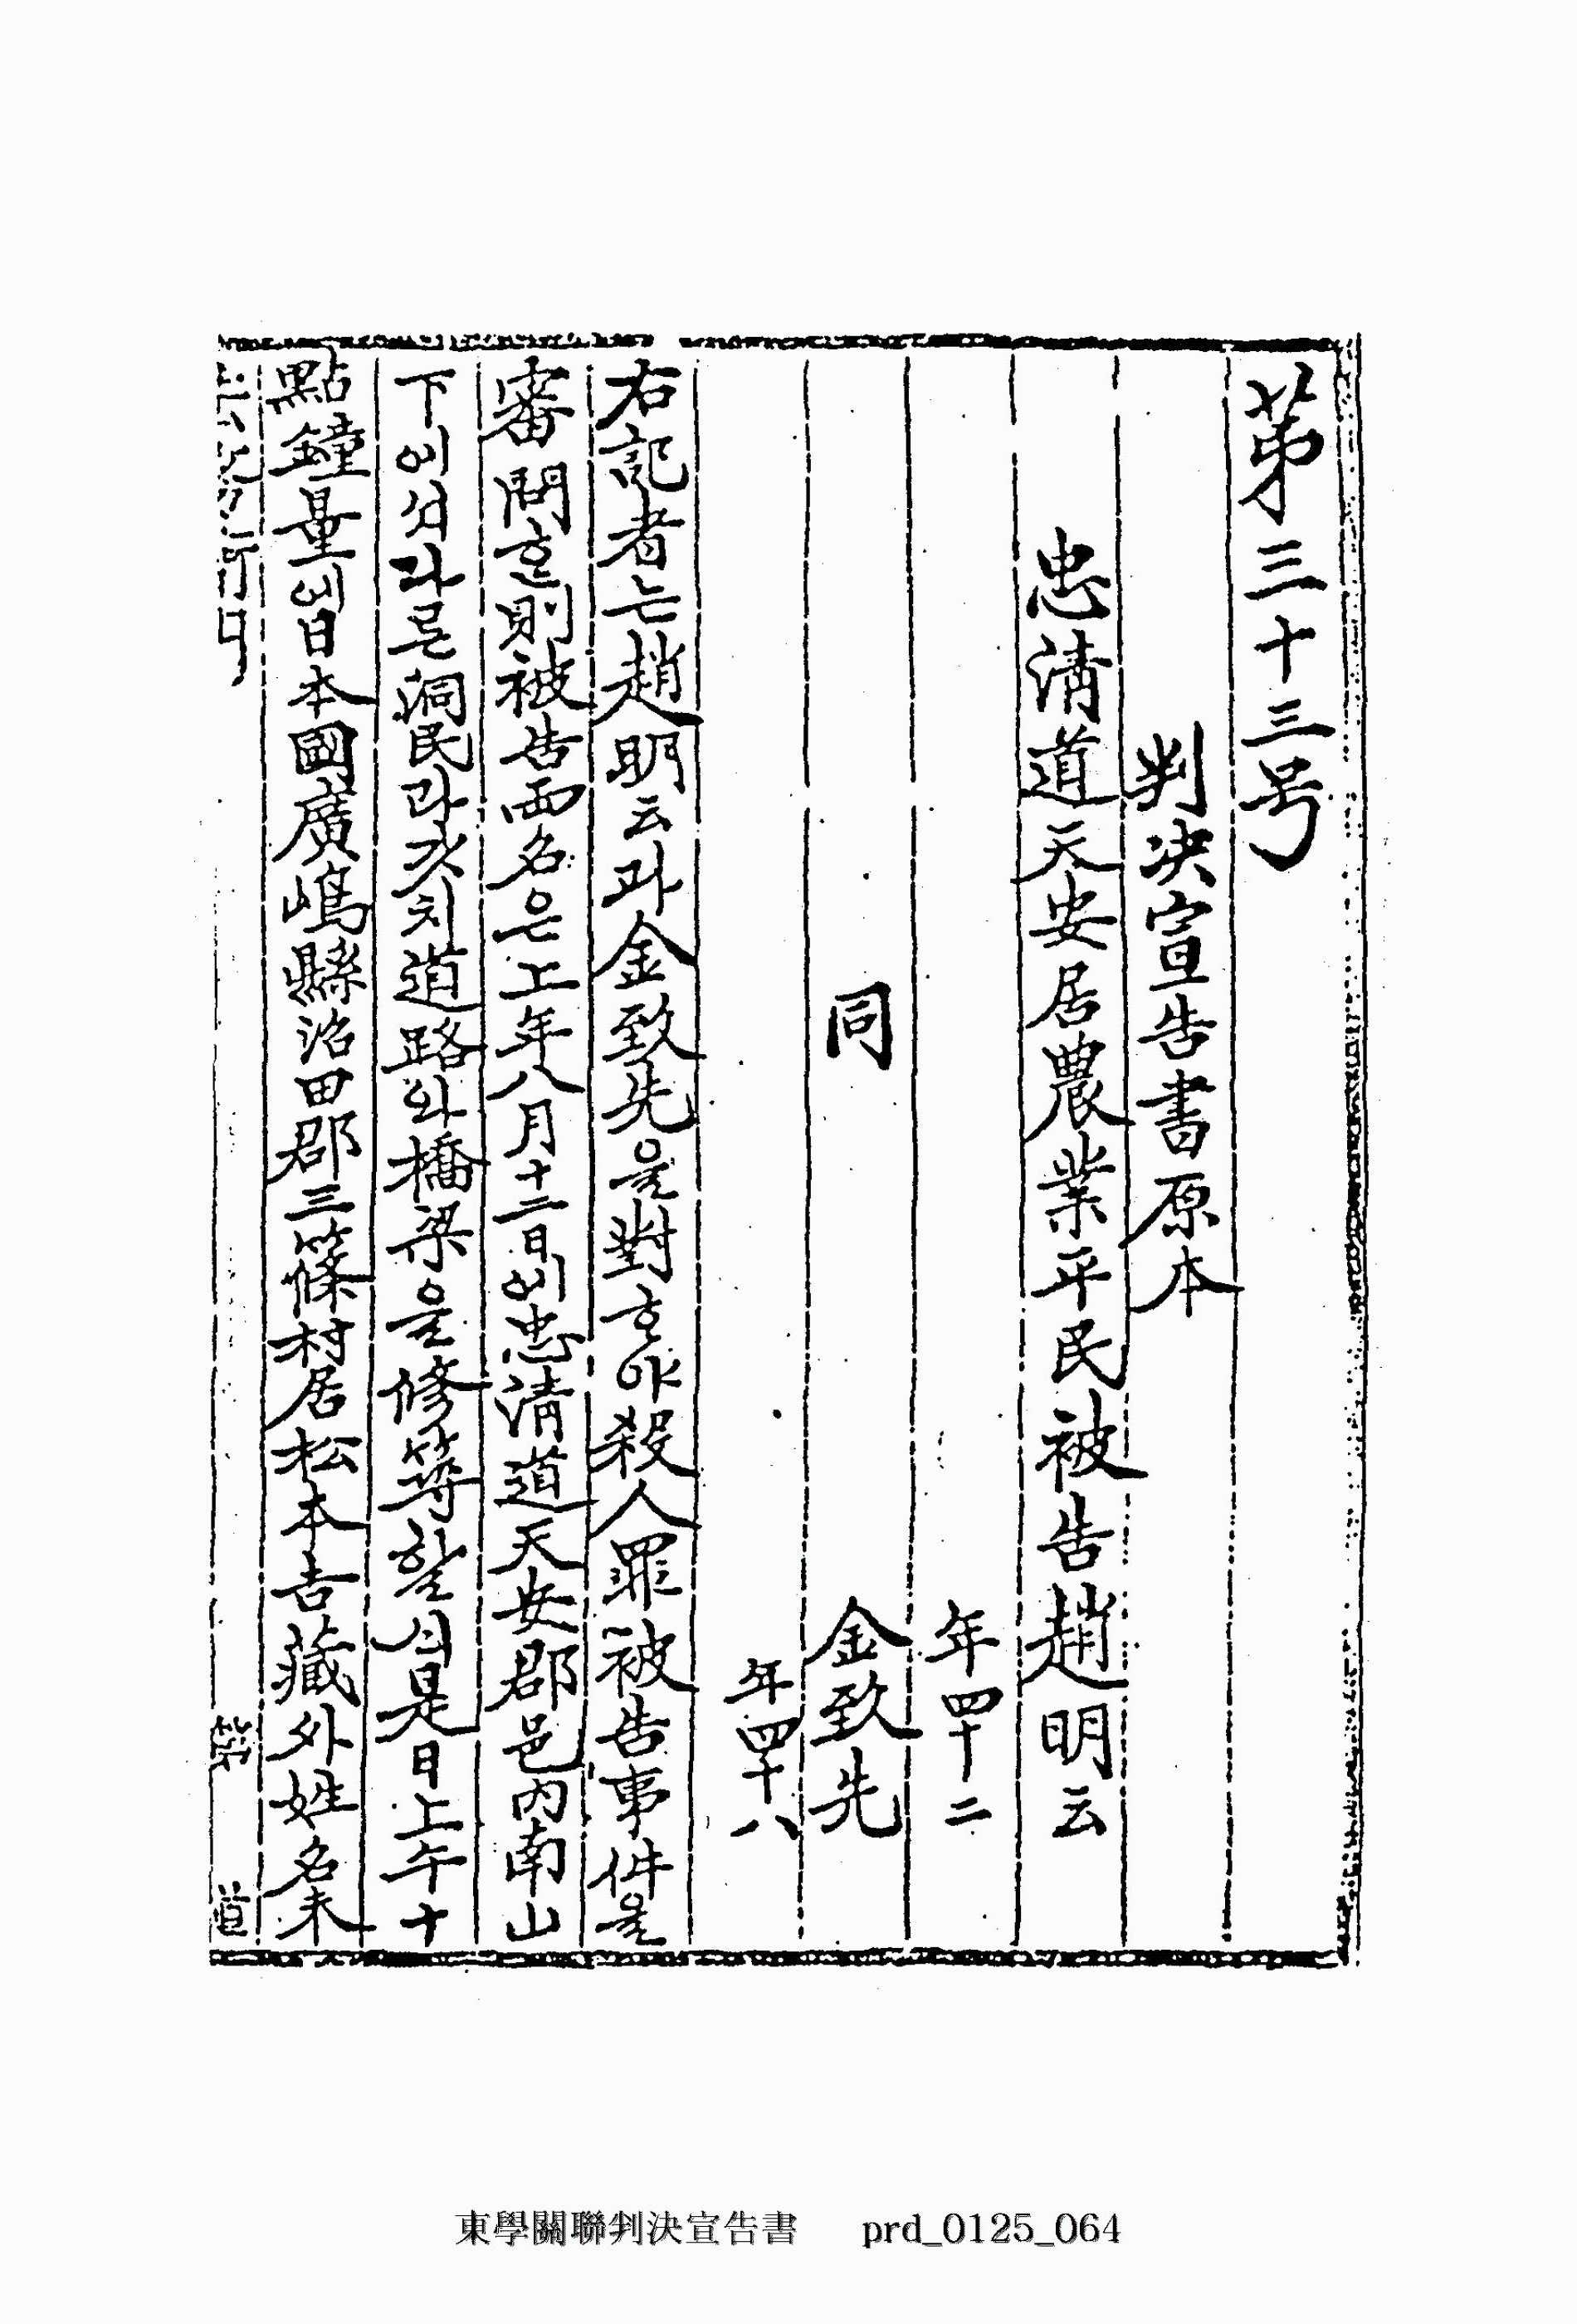 第三十三号
判决宣告書原本
忠清道天安居農業平民被告趙明云
年四十二
同 金致先
年四十八
右記者는趙明云과金致先을對ᄒᆞ야殺人罪被告事件을
審問ᄒᆞᆫ則被告両名은上年八月十二日에忠清道天安郡邑内南山
下에셔라른洞民과ᄀᆞᆺ치道路와橋梁을修築할ᄉᆡ是日上午十
點鐘量에日本國廣嶋縣沼田郡三篠村居松本吉藏外姓名未
第 道
東學關聯判決宣告書 prd_0125_064